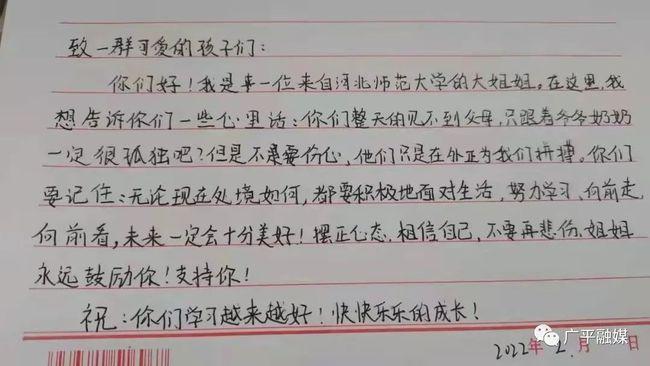 致一群可爱的孩子们：
你们好！我是来一位来自河北师范大学的大姐姐。在这里，我
想告诉你们一些心里话：你们整天的见不到父母，只跟着爷爷奶奶
一定很孤独吧？但是不要伤心，他们只是在外正为我们拼搏。你们
要记住：无论现在处境如何，都要积极地面对生活，努力学习，向前走，
向前看，未来一定会十分美好！摆正心态，相信自己，不要再悲伤，姐姐
永远鼓励你！支持你！
祝：你们学习越来越好！快快乐乐的成长！
2022年2月 日
广平融媒